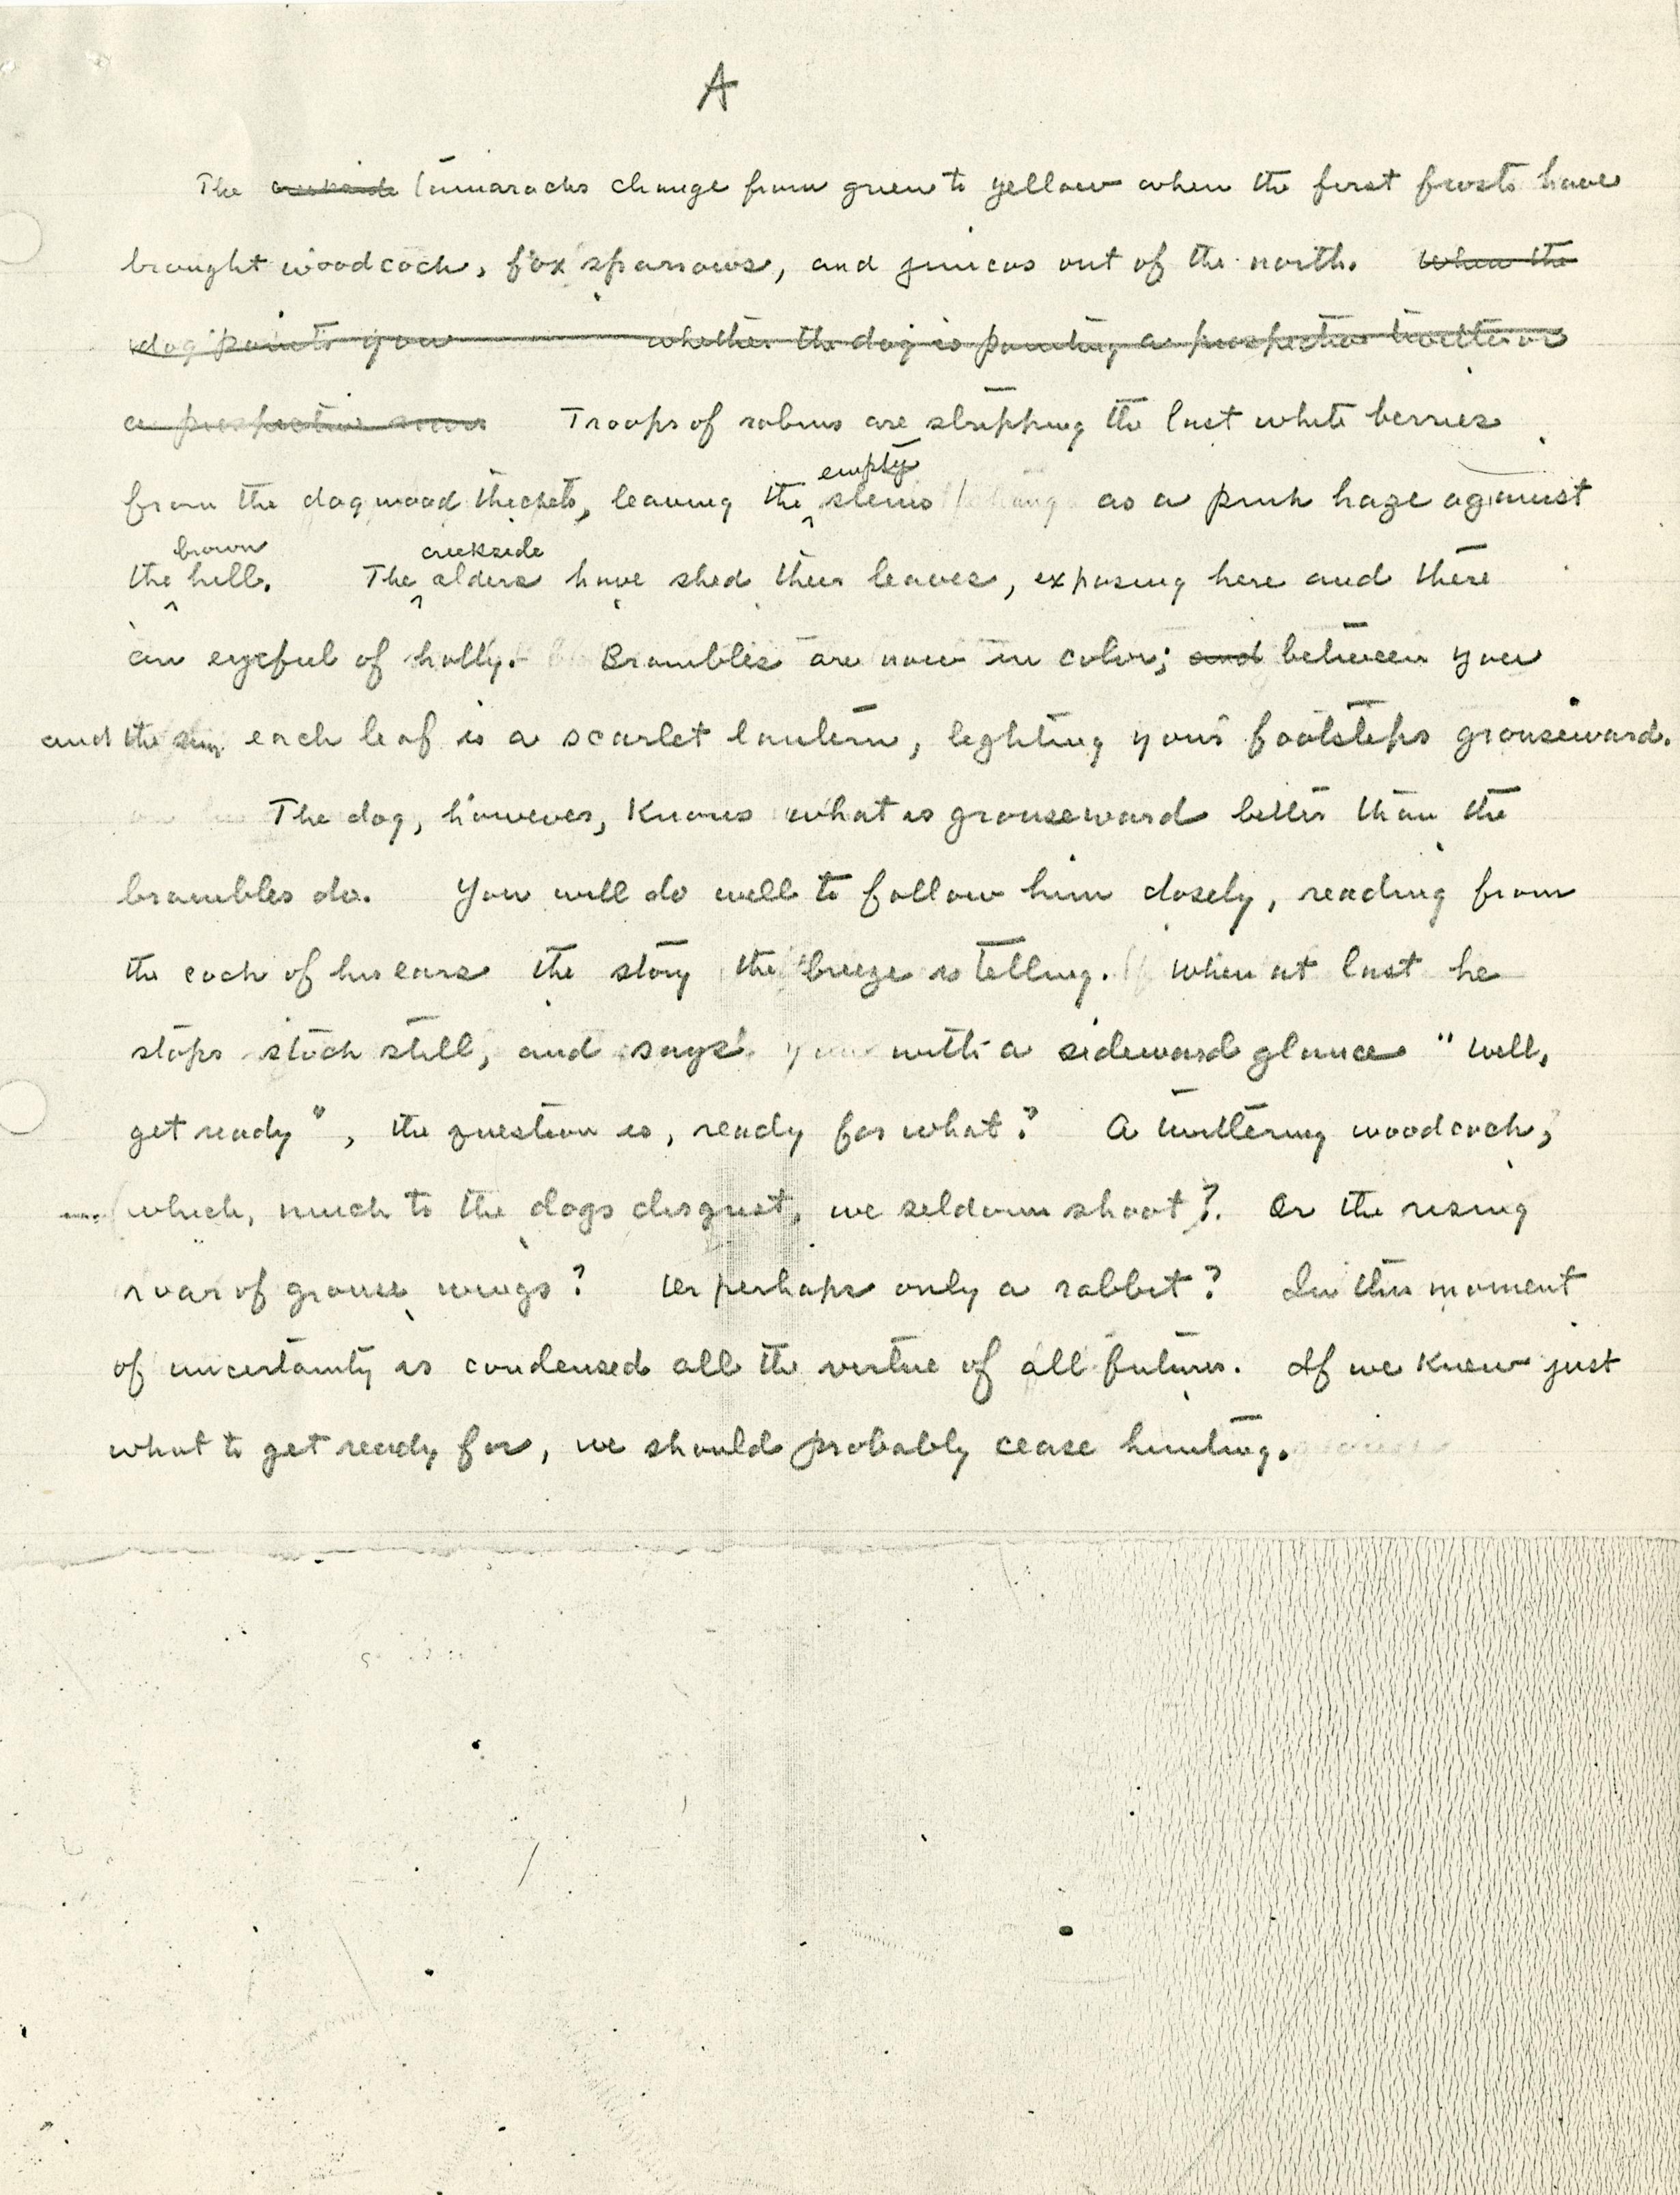 A
The creekside tamaracks change from green to yellow when the first frosts have
brought woodcock, fox sparrows, and juncos out of the north. When the
dog points you whether the dog is pointing a prospective twitter or
a prospective
Troops of robins are stripping the last white berries
empty
from the dogwood thickets, leaving the stems as a pink haze against
brown creekside
the hill. The alders have shed their leaves, exposing here and there
an eyeful of holly. Brambles are now in color; and between you
and the sun each leaf is a scarlet lantern, lighting your footsteps grouseward.
The dog, however, knows what is grouseward better than the
brambles do. You will do well to follow him closely, reading from
the cock of his ears the story the breeze is telling. When at last he
stops stock still, and says with a sideward glance "Well,
get ready", the question is, ready for what? A twittering woodcock,
which, much to the dogs disgust, we seldom shoot? Or the rising
roar of grouse wings? Or perhaps only a rabbit? In this moment
of uncertainty is condensed all the virtue of all futures. If we knew just
what to get ready for, we should probably cease hunting.